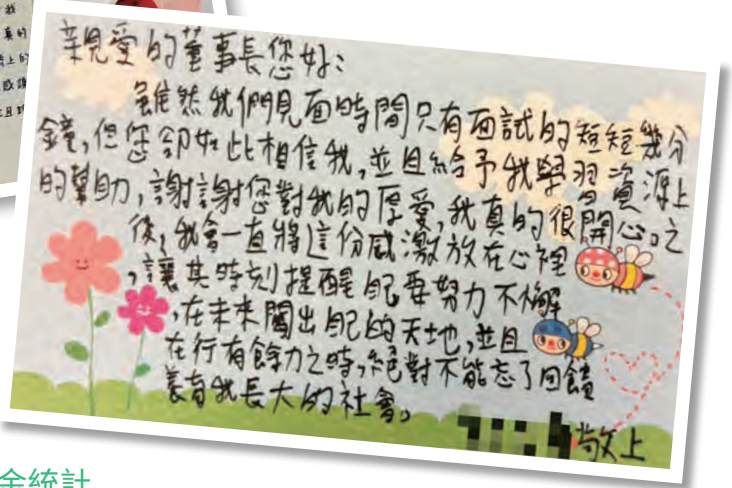 我
真的
上的
感謝
並且
親愛的董事長您好:
雖然我們見面時間只有面試的短短幾分
鐘,但您卻如此相信我,並且給予我學習資源上
的幫助,謝謝您對我的厚愛,我真的很開心!之
後,我會一直將這份感激放在心裡
,讓其時刻提醒自己要努力不懈
,在未來闖出自己的天地,並且
在行有餘力之時,絕對不能忘了回饋
養育我長大的社會。
敬上
金統計